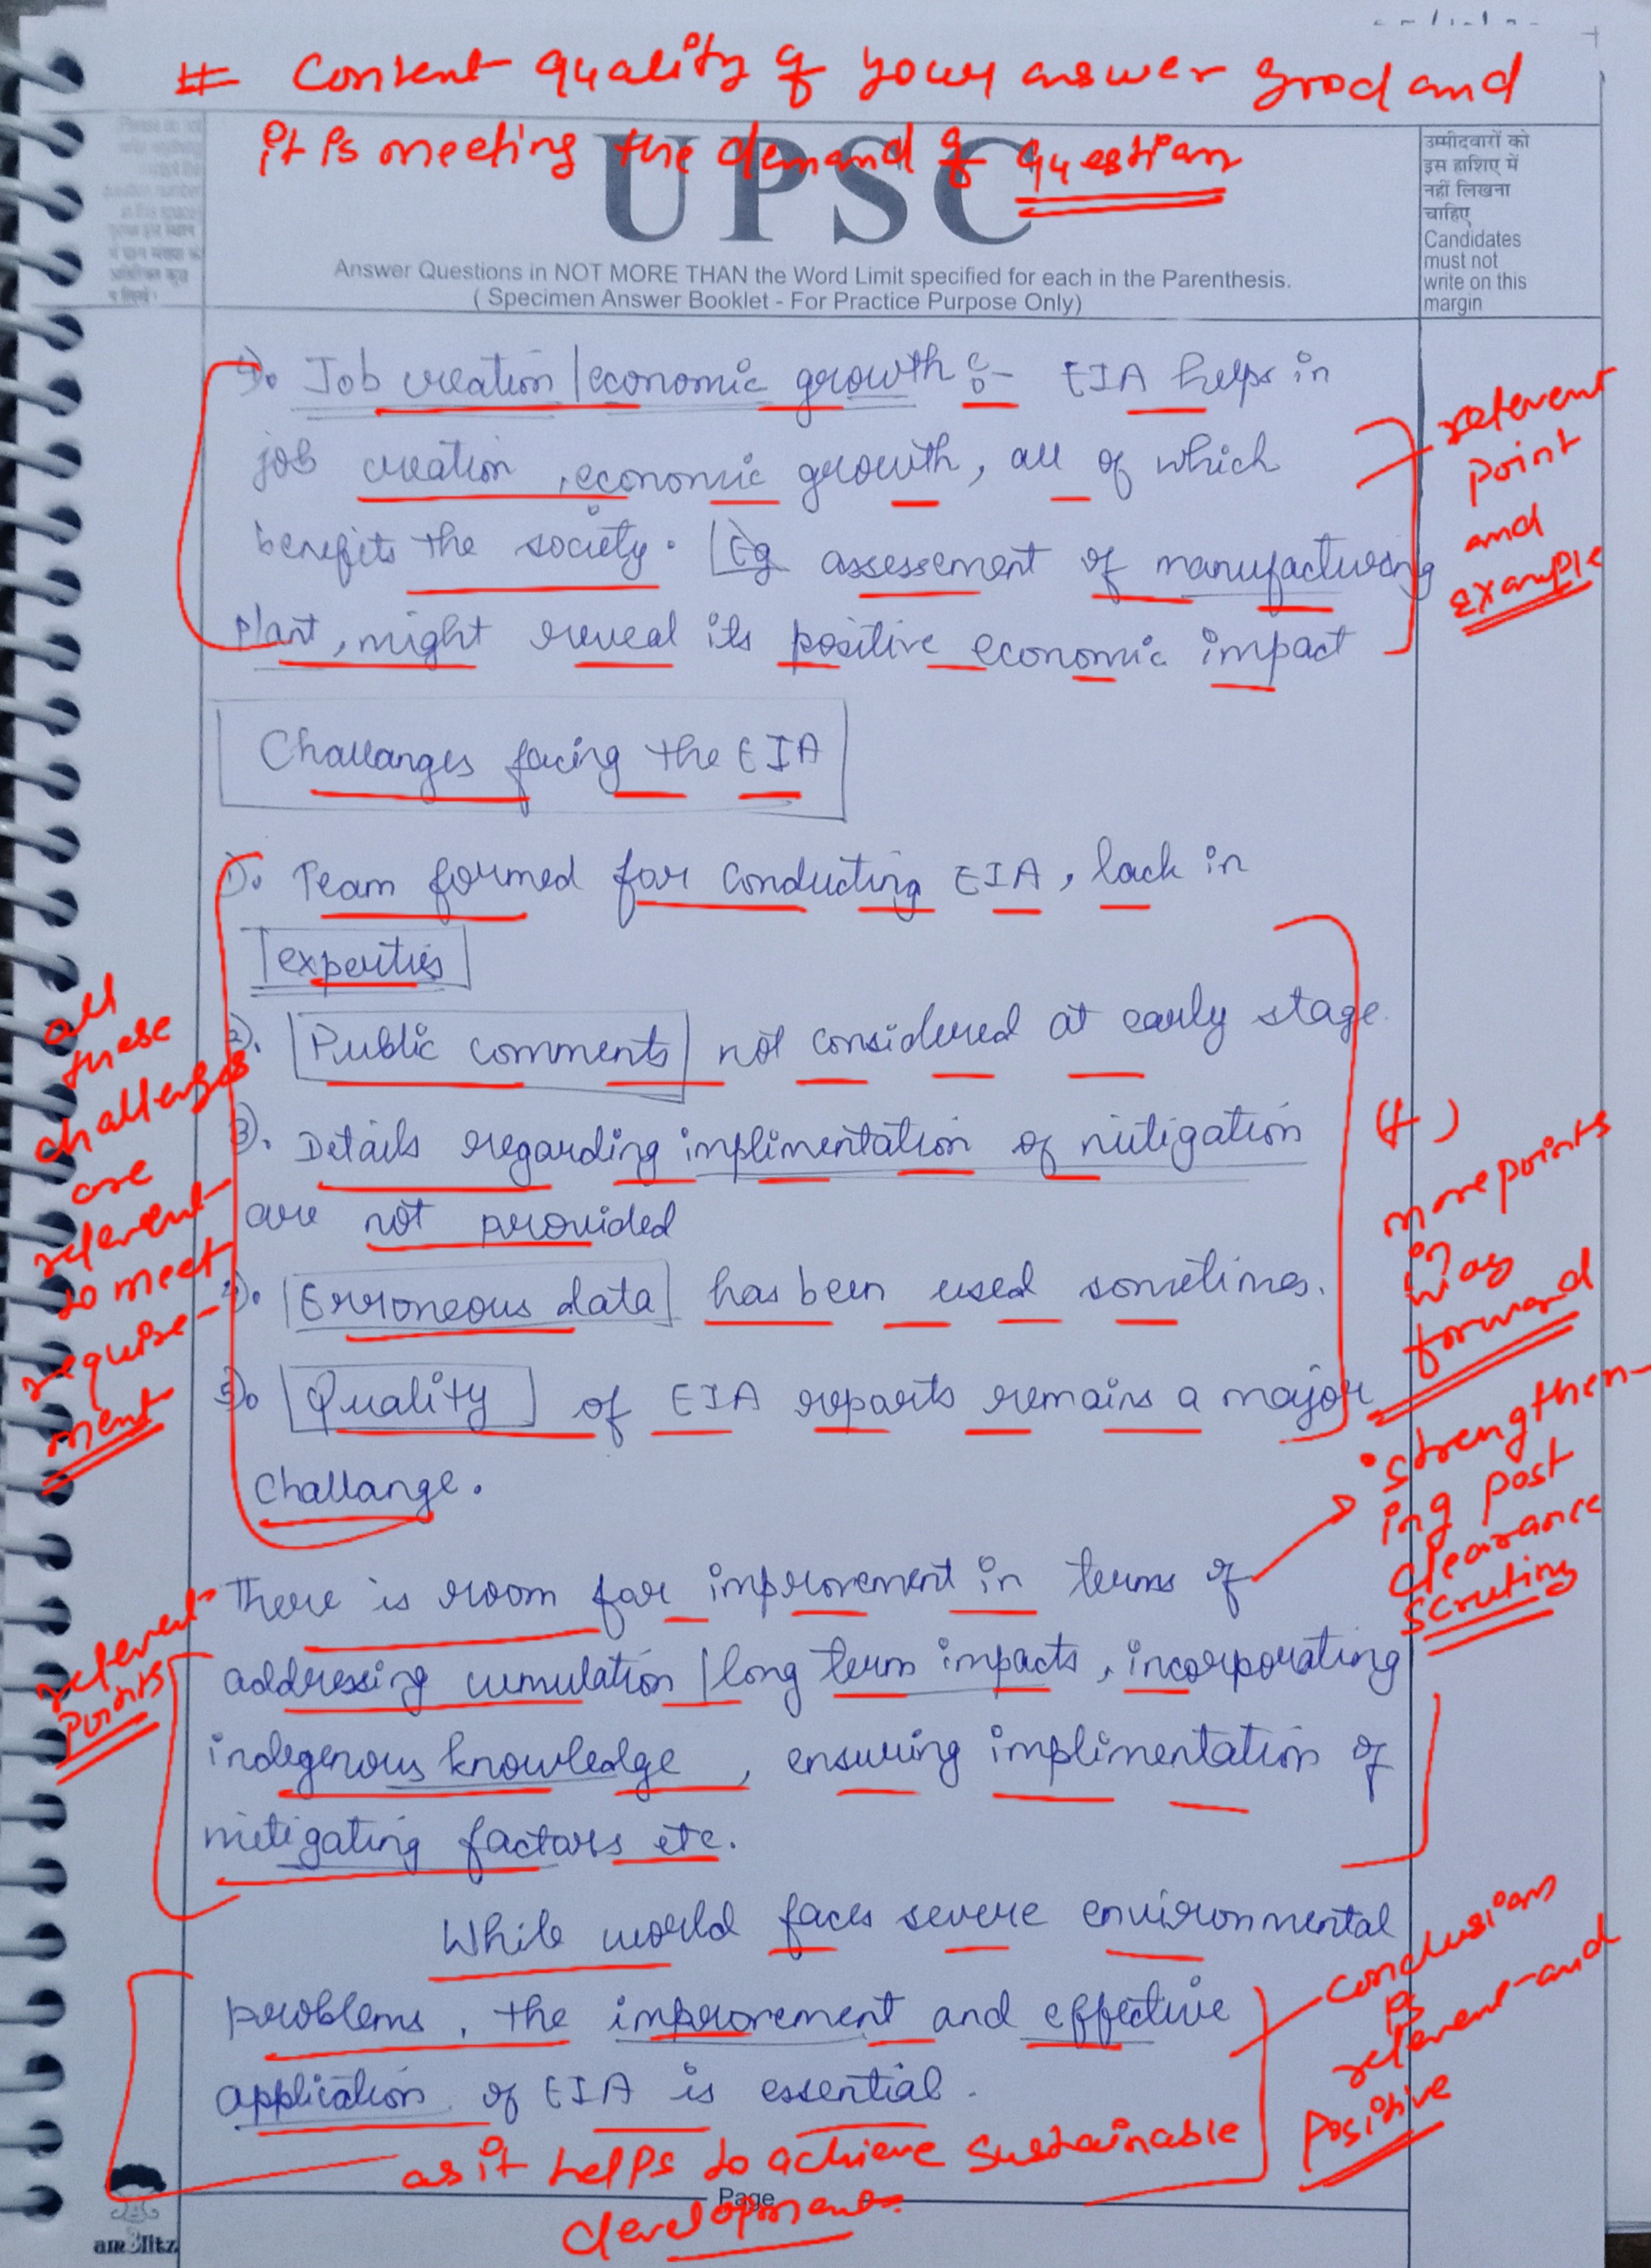 # Content quality of your answer good and
it is meeting the demand of question
UPSC
Answer Questions in NOT MORE THAN the Word Limit specified for each in the Parenthesis.
( Specimen Answer Booklet - For Practice Purpose Only)
उम्मीदवारों को
इस हाशिए में
नहीं लिखना
चाहिए
Candidates
must not
write on this
margin
4). Job creation/economic growth :- EIA helps in
job creation, economic growth, all of which
benefits the society. Eg assessement of manufacturing
plant, might reveal its positive economic impact
relevent
point
and
example
Challanges facing the EIA
1). Team formed for conducting EIA, lack in
experties
2). Public comments not considered at early stage.
3). Details regarding implimentation of mitigation
are not provided
4). Erroneous data has been used sometimes.
5). Quality of EIA reports remains a major
challange.
all
these
challenges
are
relevent
to meet
require-
ment
(+)
more points
in
way
forward
• strengthen-
ing post
clearance
scrutiny
There is room for improvement in terms of
addressing cumulation/long term impacts, incorporating
indegenous knowledge, ensuring implimentation of
mitigating factors etc.
relevent
points
While world faces severe environmental
problems, the improvement and effective
application of EIA is essential.
as it helps to achieve sustainable
development.
conclusion
is
relevent and
positive
Page